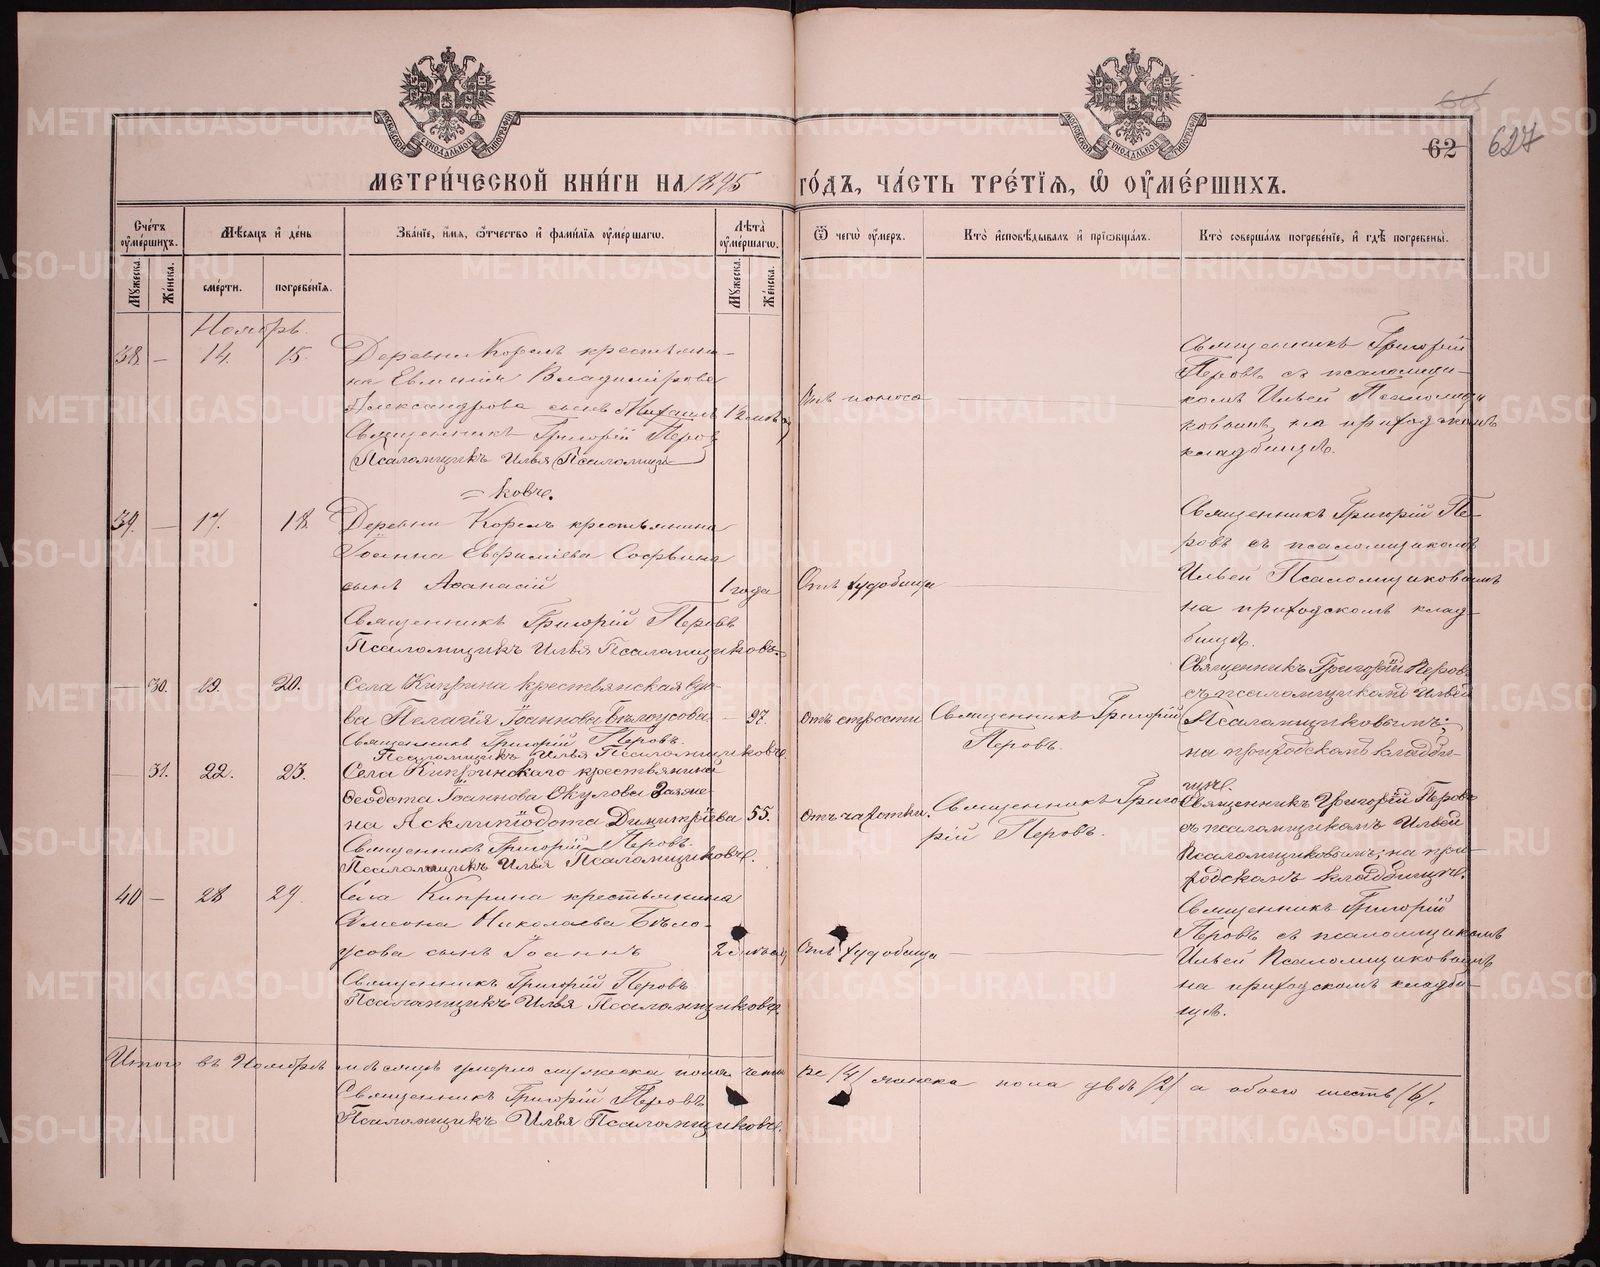 МОСКОВСКОЙ СѴНОДАЛЬНОЙ ТИПОГРАФІИ
МОСКОВСКОЙ СѴНОДАЛЬНОЙ ТИПОГРАФІИ
62 627
МЕТРИ́ЧЕСКОЙ КНИ́ГИ НА 1895 ГО́ДЪ, ЧА́СТЬ ТРЕ́ТІѦ, Ѡ҆ ОУ҆МЕ́РШИХЪ.
Сче́тъ оу҆ме́ршихъ.
Мѣ́сяцъ и҆ де́нь
Зва́ніе, и҆́мѧ, ѻ҆́тчество и҆ фами́лїѧ оу҆ме́ршагѡ.
Лѣ́та оу҆ме́ршагѡ.
Ѿ чегѡ̀ оу҆́меръ.
Кто̀ и҆сповѣ́дывалъ и҆ прїѡбща́лъ.
Кто̀ соверша́лъ погребе́нїе, и҆ гдѣ̀ погребены̀.
Мꙋ́жеска. Же́нска. сме́рти. погребе́нїѧ. Мꙋ́жеска. Же́нска.
Ноябрь.
38. — 14. 15.
Деревни Корелъ крестьяни-
на Евгенія Владимірова
Александрова сынъ Михаилъ
Священникъ Григорій Перовъ
Псаломщикъ Илья Псаломщи-
= ковъ.
12
Отъ поноса
Священникъ Григорій
Перовъ съ псаломщи-
комъ Ильей Псаломщи
ковымъ, на приходскомъ
кладбищѣ.
39. — 17. 18.
Деревни Корелъ крестьянина
Іоанна Евфиміева Софьина
сынъ Аѳанасій
Священникъ Григорій Перовъ
Псаломщикъ Илья Псаломщиковъ.
1 года
Отъ худобища
Священникъ Григорій Пе-
ровъ съ псаломщикомъ
Ильей Псаломщиковымъ
на приходскомъ клад-
бищѣ.
— 30. 19. 20.
Села Киприна крестьянская вдо-
ва Пелагія Іоаннова Бѣлоусова
Священникъ Григорій Перовъ.
Псаломщикъ Илья Псаломщиковъ.
— 97.
отъ старости
Священникъ Григорій
Перовъ.
Священникъ Григорій Перовъ
съ псаломщикомъ Ильей
Псаломщиковымъ;
на приходскомъ кладби-
щѣ.
— 31. 22. 23.
Села Кипринскаго крестьянина
Ѳеодота Іоаннова Окулова Заяже-
на Асклипіодота Димитріева
Священникъ Григорій Перовъ.
Псаломщикъ Илья Псаломщиковъ.
55.
отъ чахотки.
Священникъ Григо
рій Перовъ.
Священникъ Григорій Перовъ
съ псаломщикомъ Ильей
Псаломщиковымъ; на при-
ходскомъ кладбищѣ.
40 — 28 29.
Села Киприна крестьянина
Симеона Николаева Бѣло-
усова сынъ Іоаннъ
Священникъ Григорій Перовъ
Псаломщикъ Илья Псаломщиковъ.
Отъ худобища
Священникъ Григорій
Перовъ съ псаломщикомъ
Ильей Псаломщиковымъ
на приходскомъ кладби-
щѣ.
Итого въ Ноябрѣ мѣсяцѣ умерло мужеска пола четы ре /4/ женска пола двѣ /2/ а обоего шесть /6/.
Священникъ Григорій Перовъ
Псаломщикъ Илья Псаломщиковъ.
METRIKI.GASO-URAL.RU